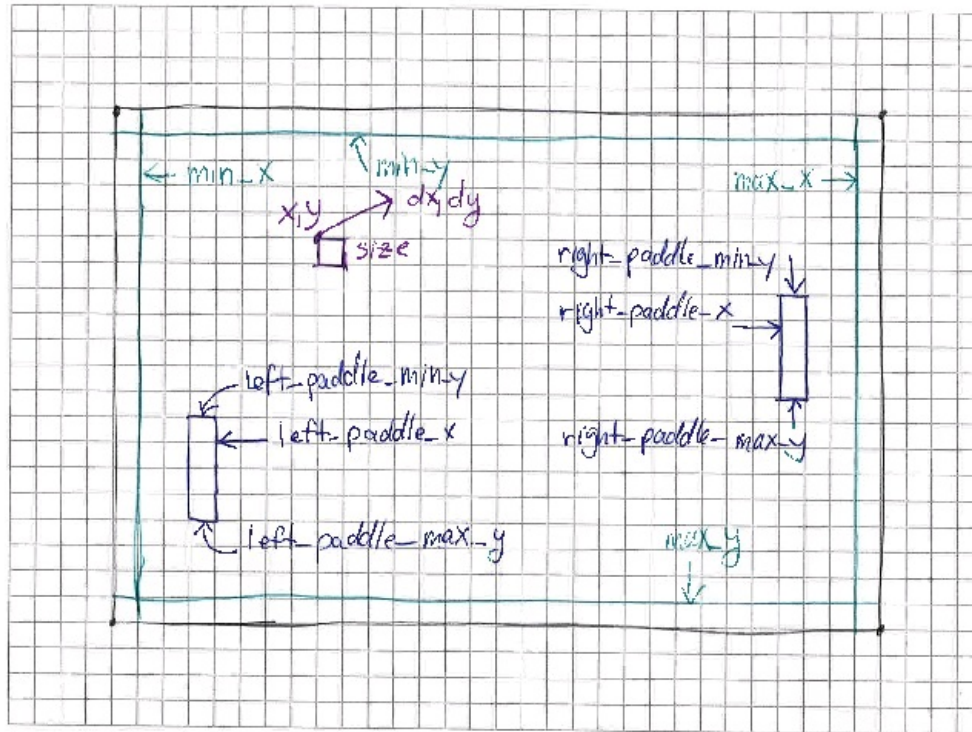 min_x
min_y
max_x
x,y
dx, dy
size
right_paddle_min_y
right_paddle_x
right_paddle_max_y
left_paddle_min_y
left_paddle_x
left_paddle_max_y
max_y